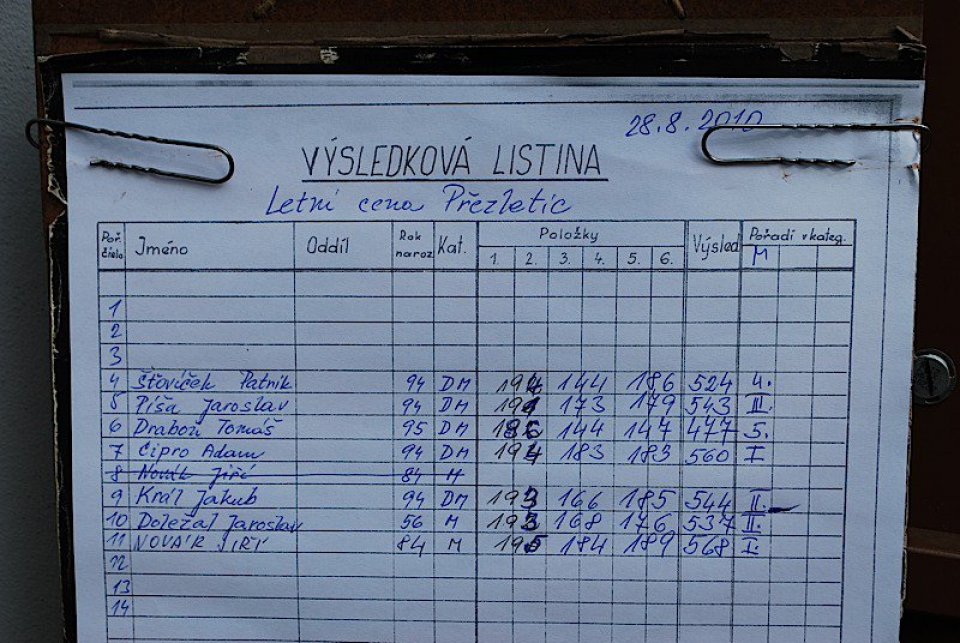 28.8.2010
VÝSLEDKOVÁ LISTINA
Letní cena Přezletic
Poř. číslo Jméno Oddíl Rok naroz Kat. Položky Výsled Pořadí v kateg.
1. 2. 3. 4. 5. 6. M
1
2
3
4 Šťovíček Patrik 94 DM 194 144 186 524 4.
5 Píša Jaroslav 94 DM 191 173 179 543 III.
6 Drabon Tomáš 95 DM 186 144 147 477 5.
7 Čipro Adam 94 DM 194 183 183 560 I
8 Novák Jiří 84 M
9 Král Jakub 94 DM 193 166 185 544 II.
10 Doležal Jaroslav 56 M 193 168 176 537 II.
11 NOVÁK JIŘÍ 84 M 195 184 189 568 I.
12
13
14